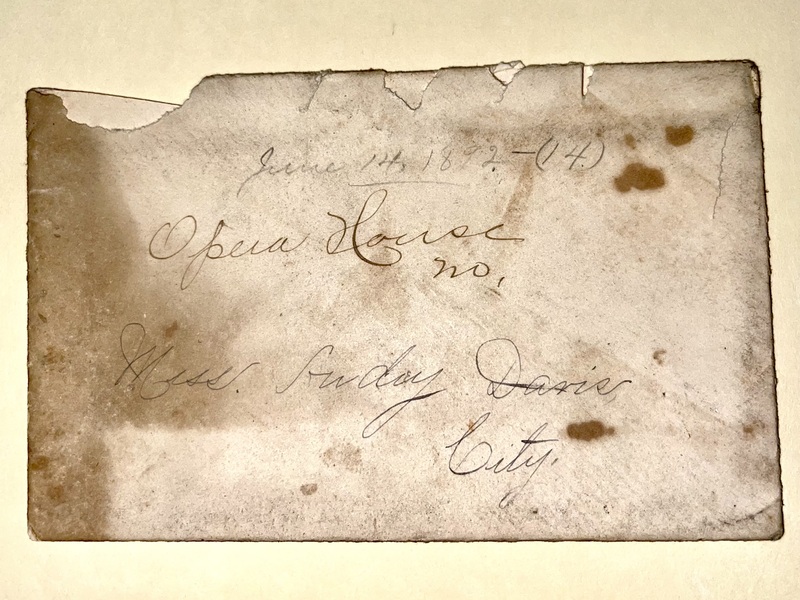 June 14, 1892-(14)
Opera House
no.
Miss. Davis
City.